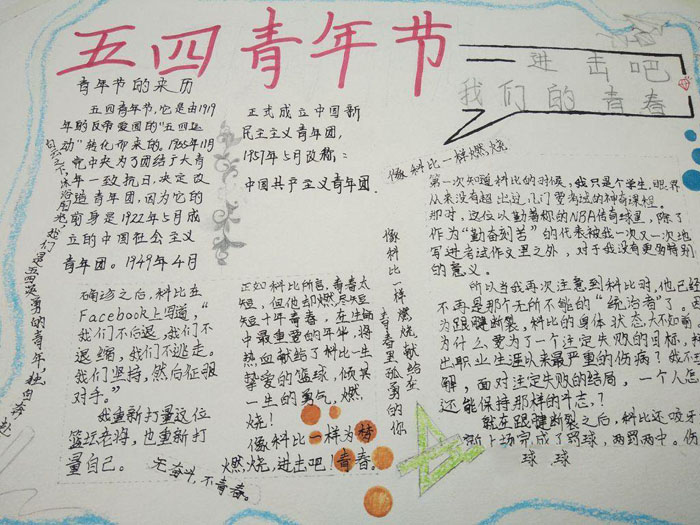 五四青年节
进击吧
我们的青春
青年节的来历
五四青年节，它是由1919
年的反帝爱国的“五四运
动”转化而来的，1935年11月
党中央为了团结广大青
年一致抗日，决定改
造青年团，因为它的
前身是1922年5月成
立的中国社会主义
青年团。1949年4月
正式成立中国新
民主主义青年团，
1957年5月改称：
中国共产主义青年团.
像科比一样燃烧
第一次知道科比的时候，我只是个学生，眼界
从来没有超出过几门要考试的神奇课程。
那时，这位以勤着称的NBA传奇球星，除了
作为“勤奋刻苦”的代表被我一次又一次地
写进考试作文里之外，对于我没有更多特别
的意义。
所以当我再次注意到科比时，他已经
不再是那个无所不能的“统治者”了。因
为跟腱断裂，科比的身体状态大不如前，
为什么要为了一个注定失败的目标，料
出职业生涯以来最严重的伤病？我不
解，面对注定失败的结局，一个人怎
还能保持那样的斗志？
就在跟腱断裂之后，科比还咬牙
上场完成了罚球，两罚两中。伤
球 球
确诊之后，科比在
Facebook上写道，“
我们不后退，我们不
退缩，我们不逃走。
我们坚持，然后征服
对手。”
我重新打量这位
篮坛老将，也重新打
量自己。
无奋斗，不青春。
正如科比所言，青春太
短，但他却燃尽短
短十年青春，在生命
中最重要的年华，将
热血献给了科比一生
挚爱的篮球，倾其
一生的勇气，燃
烧！
像科比一样为梦
燃烧，进击吧！青春。
像科比一样燃烧献给在
青春里孤勇的你
白云之下，沐浴阳光，我们是五四返勇的青年，独自奔赴